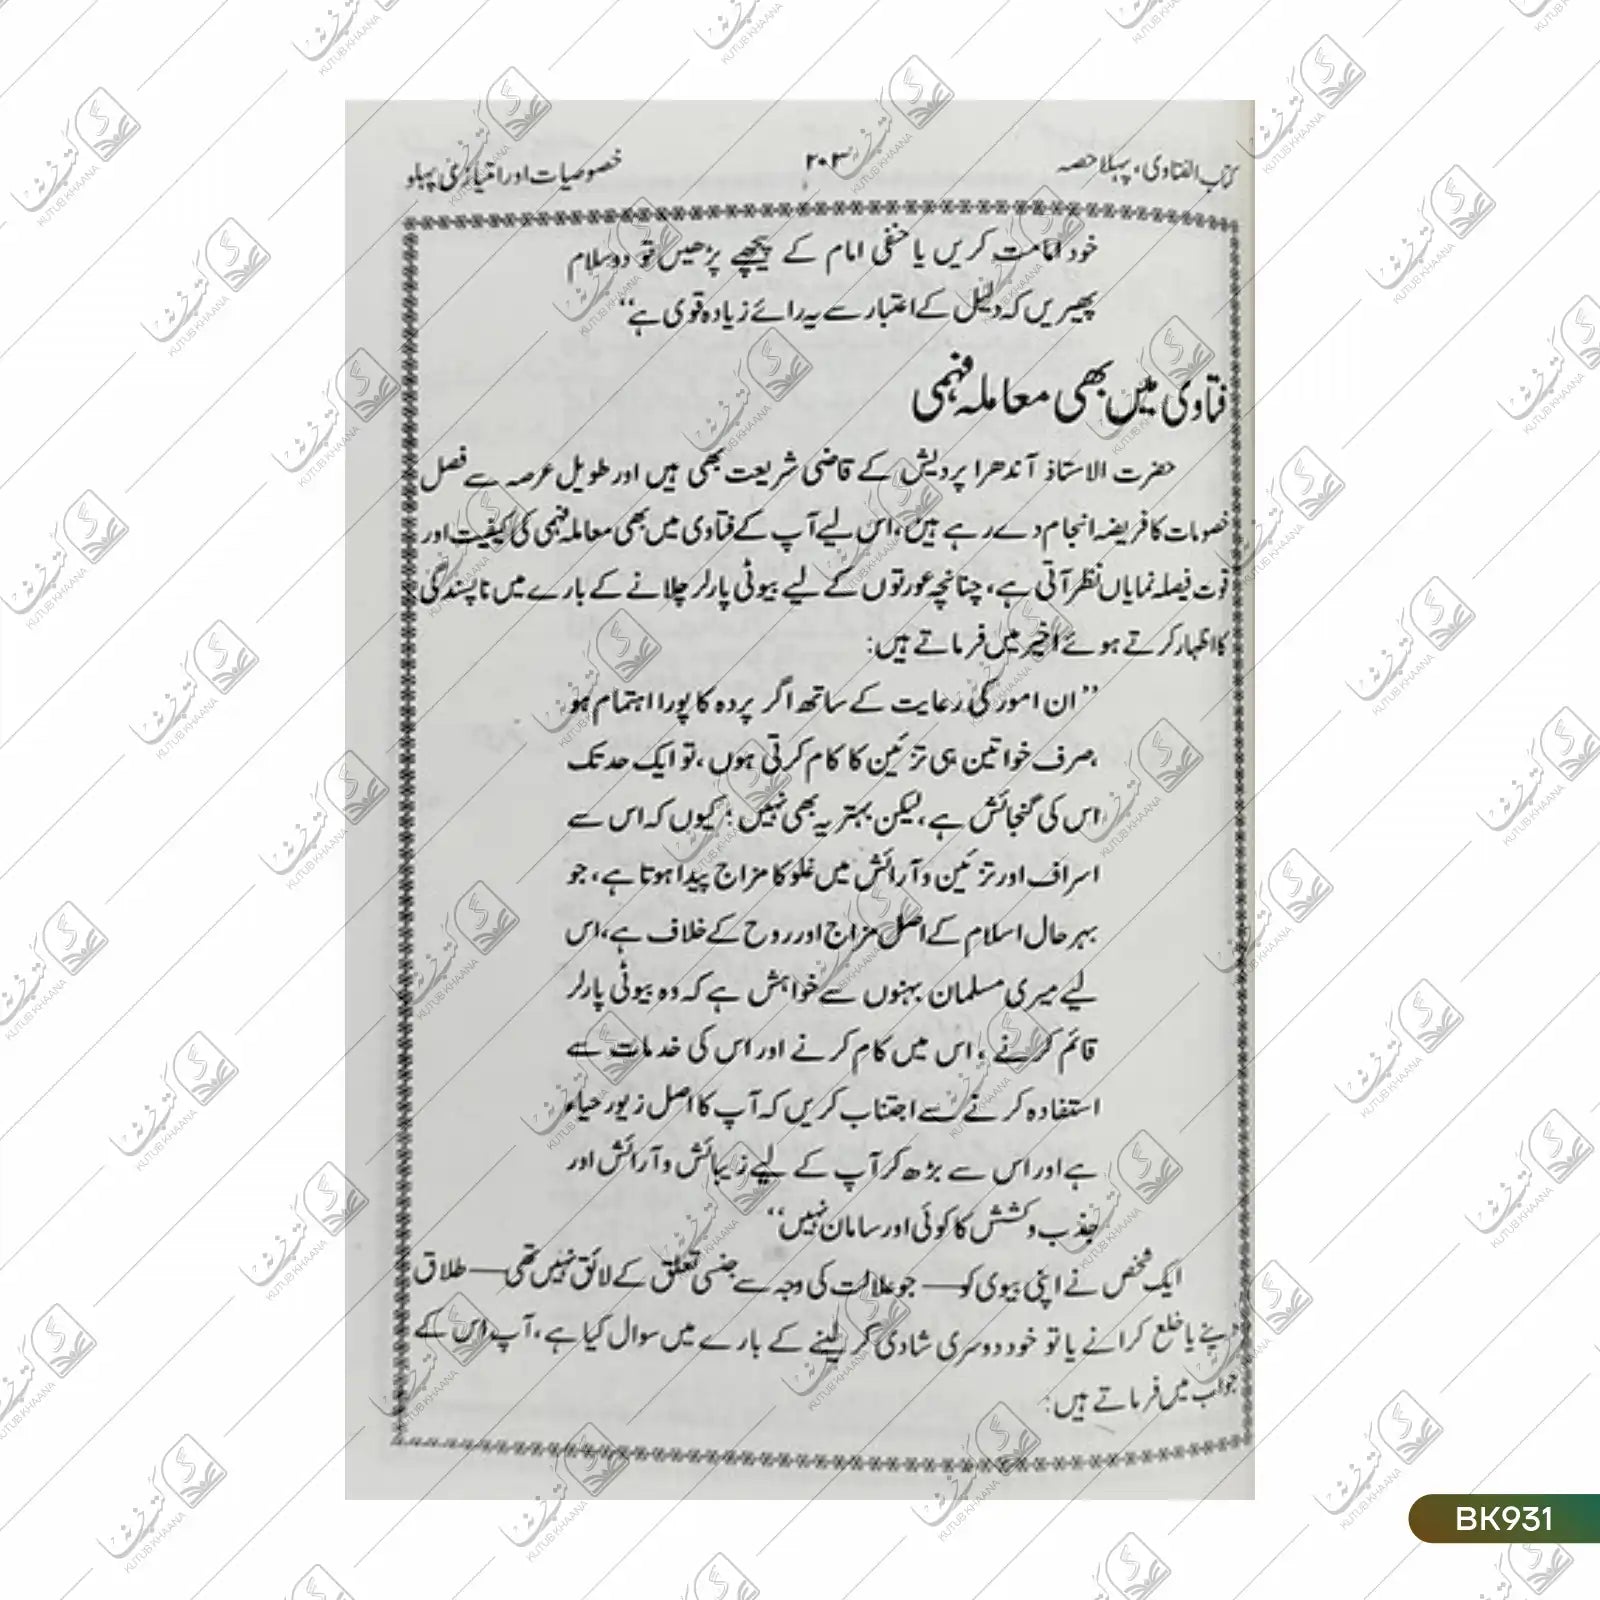 کتاب الفتاوی، پہلا حصہ ۲۰۳ خصوصیات اور امتیازی پہلو
خود امامت کریں یا حنفی امام کے پیچھے پڑھیں تو دو سلام
پھیریں کہ دلیل کے اعتبار سے یہ رائے زیادہ قوی ہے‘‘
فتاوی میں بھی معاملہ فہمی
حضرت الاستاذ آندھرا پردیش کے قاضی شریعت بھی ہیں اور طویل عرصہ سے فصل
خصومات کا فریضہ انجام دے رہے ہیں، اس لیے آپ کے فتاوی میں بھی معاملہ فہمی کی کیفیت اور
قوت فیصلہ نمایاں نظر آتی ہے، چنانچہ عورتوں کے لیے بیوٹی پارلر چلانے کے بارے میں ناپسندگی
کا اظہار کرتے ہوئے اخیر میں فرماتے ہیں:
’’ان امور کی رعایت کے ساتھ اگر پردہ کا پورا اہتمام ہو
،صرف خواتین ہی تزئین کا کام کرتی ہوں، تو ایک حد تک
اس کی گنجائش ہے، لیکن بہتر یہ بھی نہیں؛ کیوں کہ اس سے
اسراف اور تزئین و آرائش میں غلو کا مزاج پیدا ہوتا ہے، جو
بہر حال اسلام کے اصل مزاج اور روح کے خلاف ہے، اس
لیے میری مسلمان بہنوں سے خواہش ہے کہ وہ بیوٹی پارلر
قائم کرنے، اس میں کام کرنے اور اس کی خدمات سے
استفادہ کرنے سے اجتناب کریں کہ آپ کا اصل زیور حیاء
ہے اور اس سے بڑھ کر آپ کے لیے زیبائش و آرائش اور
جذب و کشش کا کوئی اور سامان نہیں‘‘
ایک شخص نے اپنی بیوی کو — جو علالت کی وجہ سے جنسی تعلق کے لائق نہیں تھی — طلاق
دینے یا خلع کرانے یا تو خود دوسری شادی کر لینے کے بارے میں سوال کیا ہے، آپ اس کے
جواب میں فرماتے ہیں:
BK931